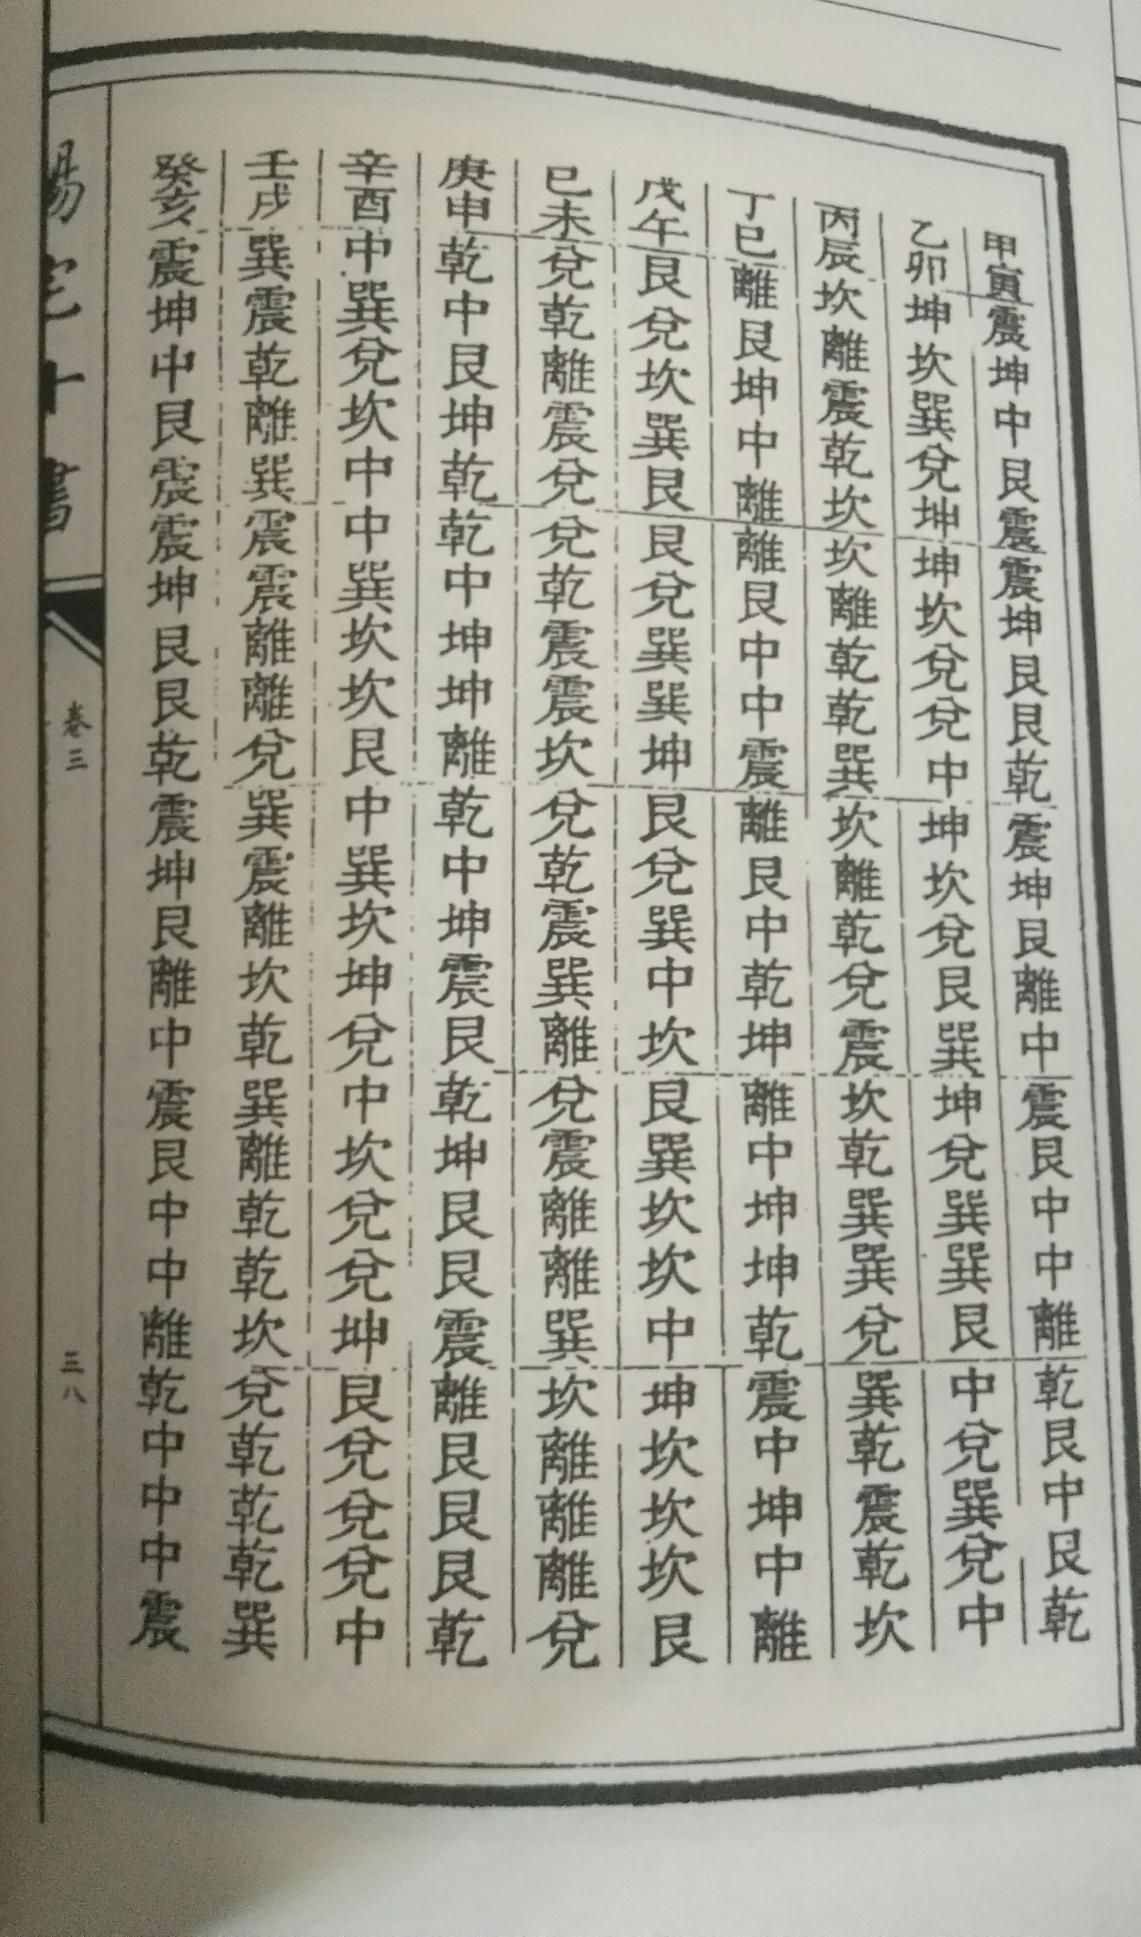 甲寅震坤中艮震震坤艮艮乾震坤艮離中震艮中中離乾艮中艮乾
乙卯坤坎巽兌坤坤坎兌兌中坤坎兌艮巽坤兌巽巽艮中兌巽兌中
丙辰坎離震乾坎坎離乾乾巽坎離乾兌震坎乾巽巽兌巽乾震乾坎
丁巳離艮坤中離離艮中中震離艮中乾坤離中坤坤乾震中坤中離
戊午艮兌坎巽艮艮兌巽巽坤艮兌巽中坎艮巽坎坎中坤坎坎坎艮
巳未兌乾離震兌兌乾震震坎兌乾震巽離兌震離離巽坎離離離兌
庚申乾中艮坤乾乾中坤坤離乾中坤震艮乾坤艮艮震離艮艮艮乾
辛酉中巽兌坎中中巽坎坎艮中巽坎坤兌中坎兌兌坤艮兌兌兌中
壬戌巽震乾離巽震震離離兌巽震離坎乾巽離乾乾坎兌乾乾乾巽
癸亥震坤中艮震震坤艮艮乾震坤艮離中震艮中中離乾中中中震
陽宅十書
卷三
三八